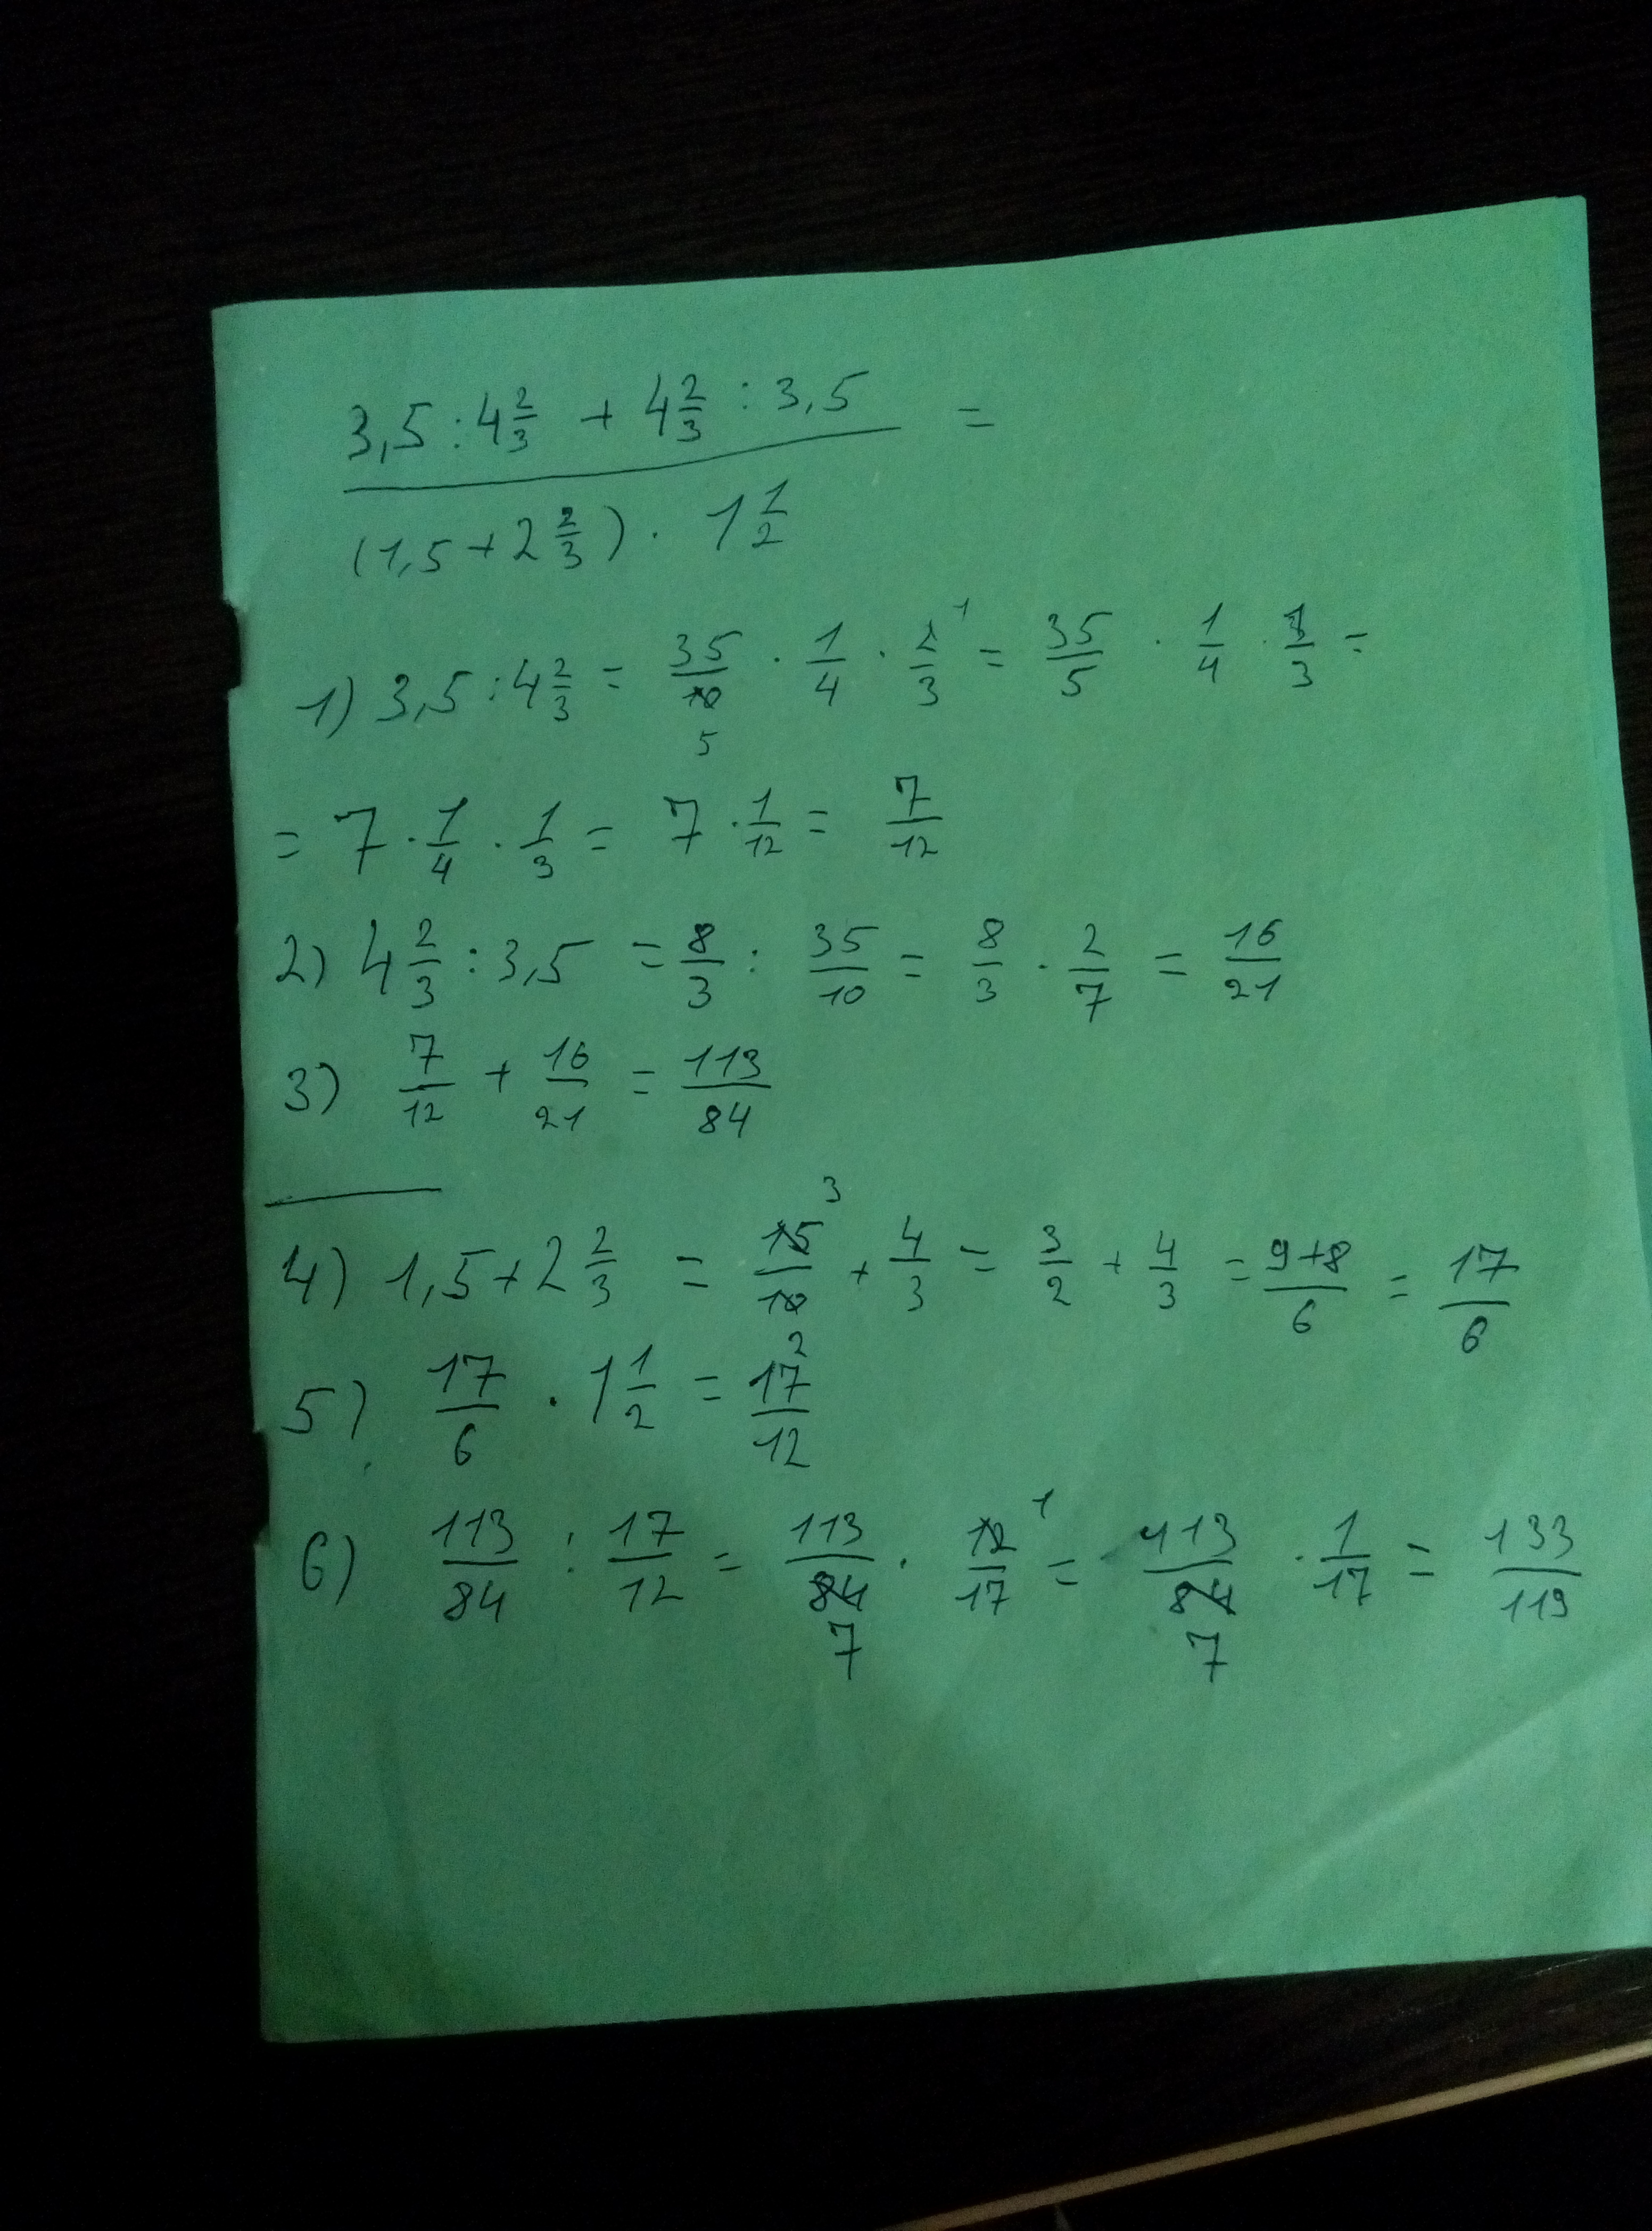 3,5 : 4 2/3 + 4 2/3 : 3,5 =
(1,5 + 2 2/3) · 1 1/2
1) 3,5 : 4 2/3 = 35/10 5 · 1/4 · 2/3 1 = 35/5 · 1/4 · 1/3 =
= 7 · 1/4 · 1/3 = 7 · 1/12 = 7/12
2) 4 2/3 : 3,5 = 8/3 : 35/10 = 8/3 · 2/7 = 16/21
3) 7/12 + 16/21 = 113/84
4) 1,5 + 2 2/3 = 15/10 3 2 + 4/3 = 3/2 + 4/3 = 9+8/6 = 17/6
5) 17/6 · 1 1/2 = 17/12
6) 113/84 : 17/12 = 113/84 7 · 12/17 1 = 113/84 7 · 1/17 = 133/119